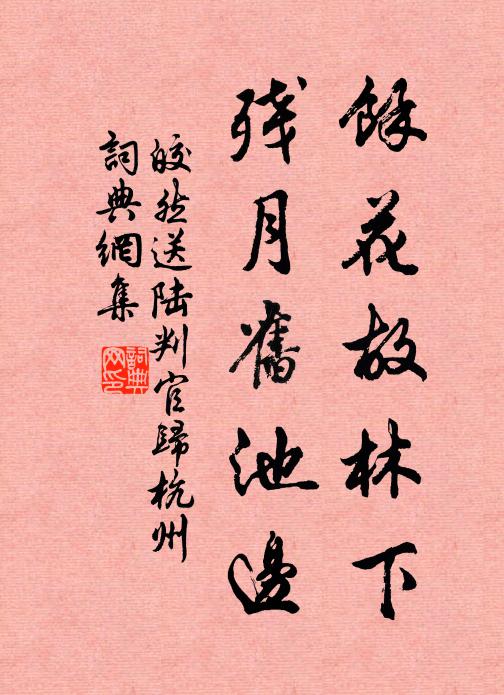 餘花故林下
残月舊池邊
皎然送陆判官歸杭州
詞典網集
詞典网印